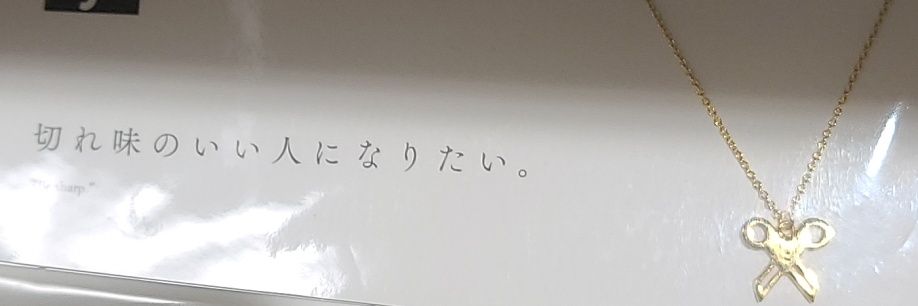 切れ味のいい人になりたい。
sharp."